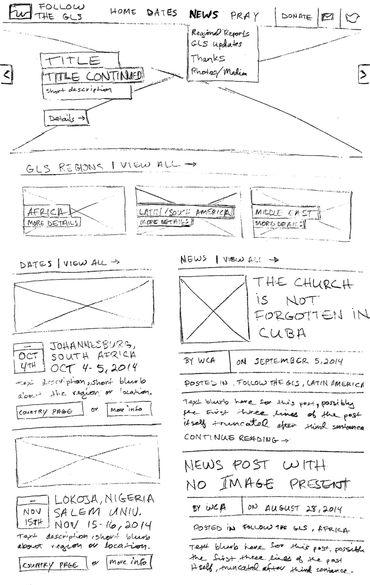 FOLLOW THE GLS
HOME DATES NEWS PRAY DONATE
Regional Reports
GLS updates
Thanks
Photos/Media
TITLE
TITLE CONTINUED
short description
Details →
< >
GLS REGIONS | VIEW ALL →
AFRICA
MORE DETAILS
LATIN/SOUTH AMERICA
MORE DETAILS
MIDDLE EAST
MORE DETAILS
DATES | VIEW ALL →
OCT
4TH
JOHANNESBURG,
SOUTH AFRICA
OCT 4-5, 2014
Text description, short blurb
about the region or location.
COUNTRY PAGE or More info
NOV
15TH
LOKOJA, NIGERIA
SALEM UNIV.
NOV 15-16, 2014
Text description, short blurb
about region or location.
COUNTRY PAGE or MORE INFO
NEWS | VIEW ALL →
THE CHURCH
IS NOT
FORGOTTEN IN
CUBA
BY WCA ON SEPTEMBER 5, 2014
POSTED IN, FOLLOW THE GLS, LATIN AMERICA
Text blurb here for this post, possibly
the first three lines of the post
itself truncated after third sentence
CONTINUE READING →
NEWS POST WITH
NO IMAGE PRESENT
BY WCA ON AUGUST 28, 2014
POSTED IN FOLLOW THE GLS, AFRICA
Text blurb here for this post, possibly
the first three lines of the post
itself, truncated after third sentence.